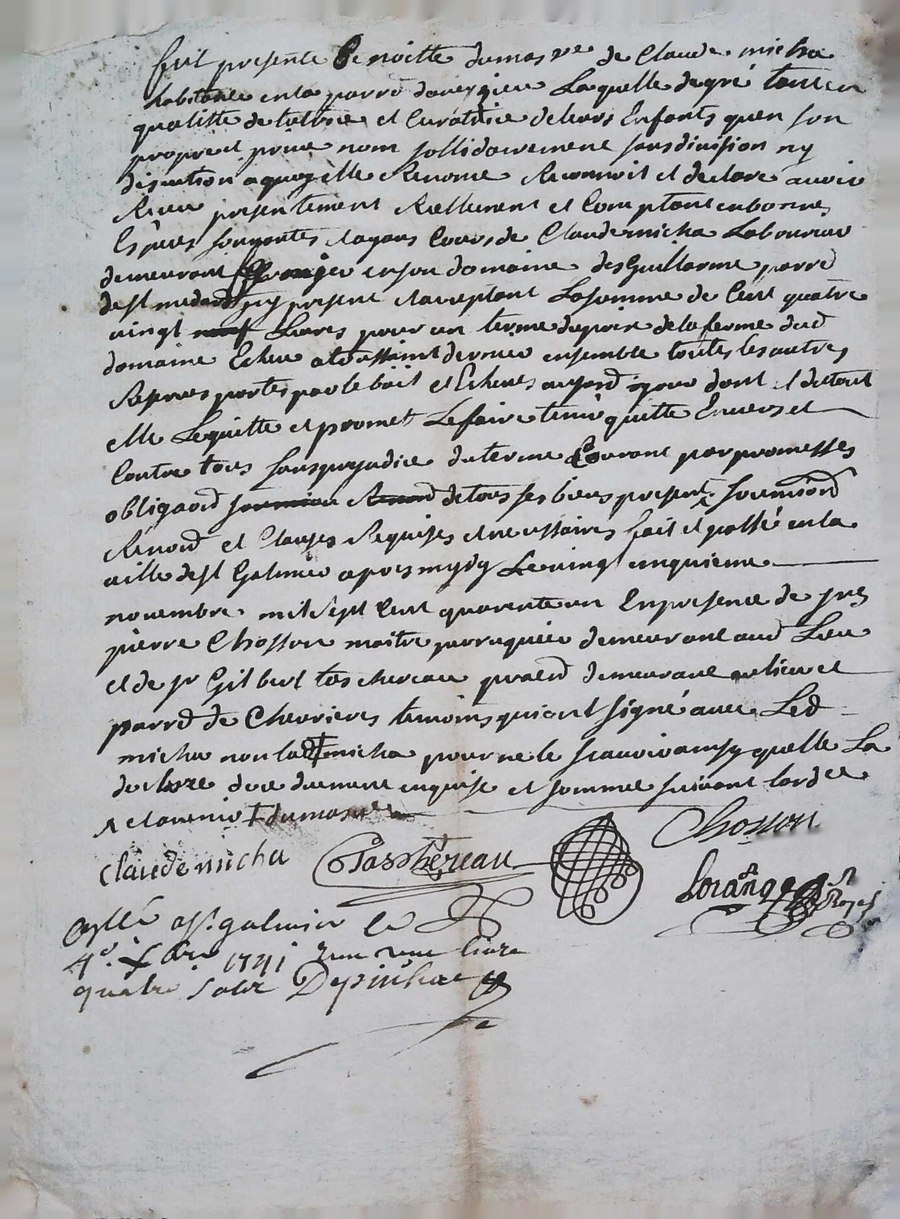 fut presente Benoitte dumas vve de Claude micha
habitante en la parrd daveizieu Laquelle de gré tant en
qualitté de tuttrice et Curatrice de leurs Enfants qu'en son
propre et privé nom sollidairement sans division ny
discution a quoy elle Renonce Reconnoit et declare avoir
Receu presentement Reellement et Comptant en bonnes
Espèces sonnantes ayans Cours de Claude micha Laboureur
demeurant granger en son domaine des Guillarme parrd
de st medard icy present et acceptant La somme de Cent quatre
vingt Livres pour un terme du prix de la ferme dud
domaine Echeu a toussaint dernier ensemble toutes les autres
Reserves portés par le bail et Echeues aujourd'huy dont et du tout
elle Le quitte et promet Le faire tenir quitte Envers et
Contre tous sans prejudice du terme Courant par promesses
obligaond de tous ses biens present soumiond
Renond et Clauses Requises et necessaires fait et passé en la
ville de st Galmier apres midy Le vingt cinquieme
novembre mil sept Cent quarente un En presence de srs
pierre Chosson maitre perruquier demeurant aud Lieu
et de sr Gilbert taschereau demeurant au lieu et
parrd de Chevrieres temoins qui ont signé avec Led
micha non lad + micha pour ne le sçavoir ainsy quelle La
declaré de ce duement enquise et sommée suivant lordce
+ dumas vve
claude micha GTasshereau Chosson
Lorange Nre Royal
Cllé a st galmier le
4e Xbre 1741 Reçu une livre
quatre sols Depinhac